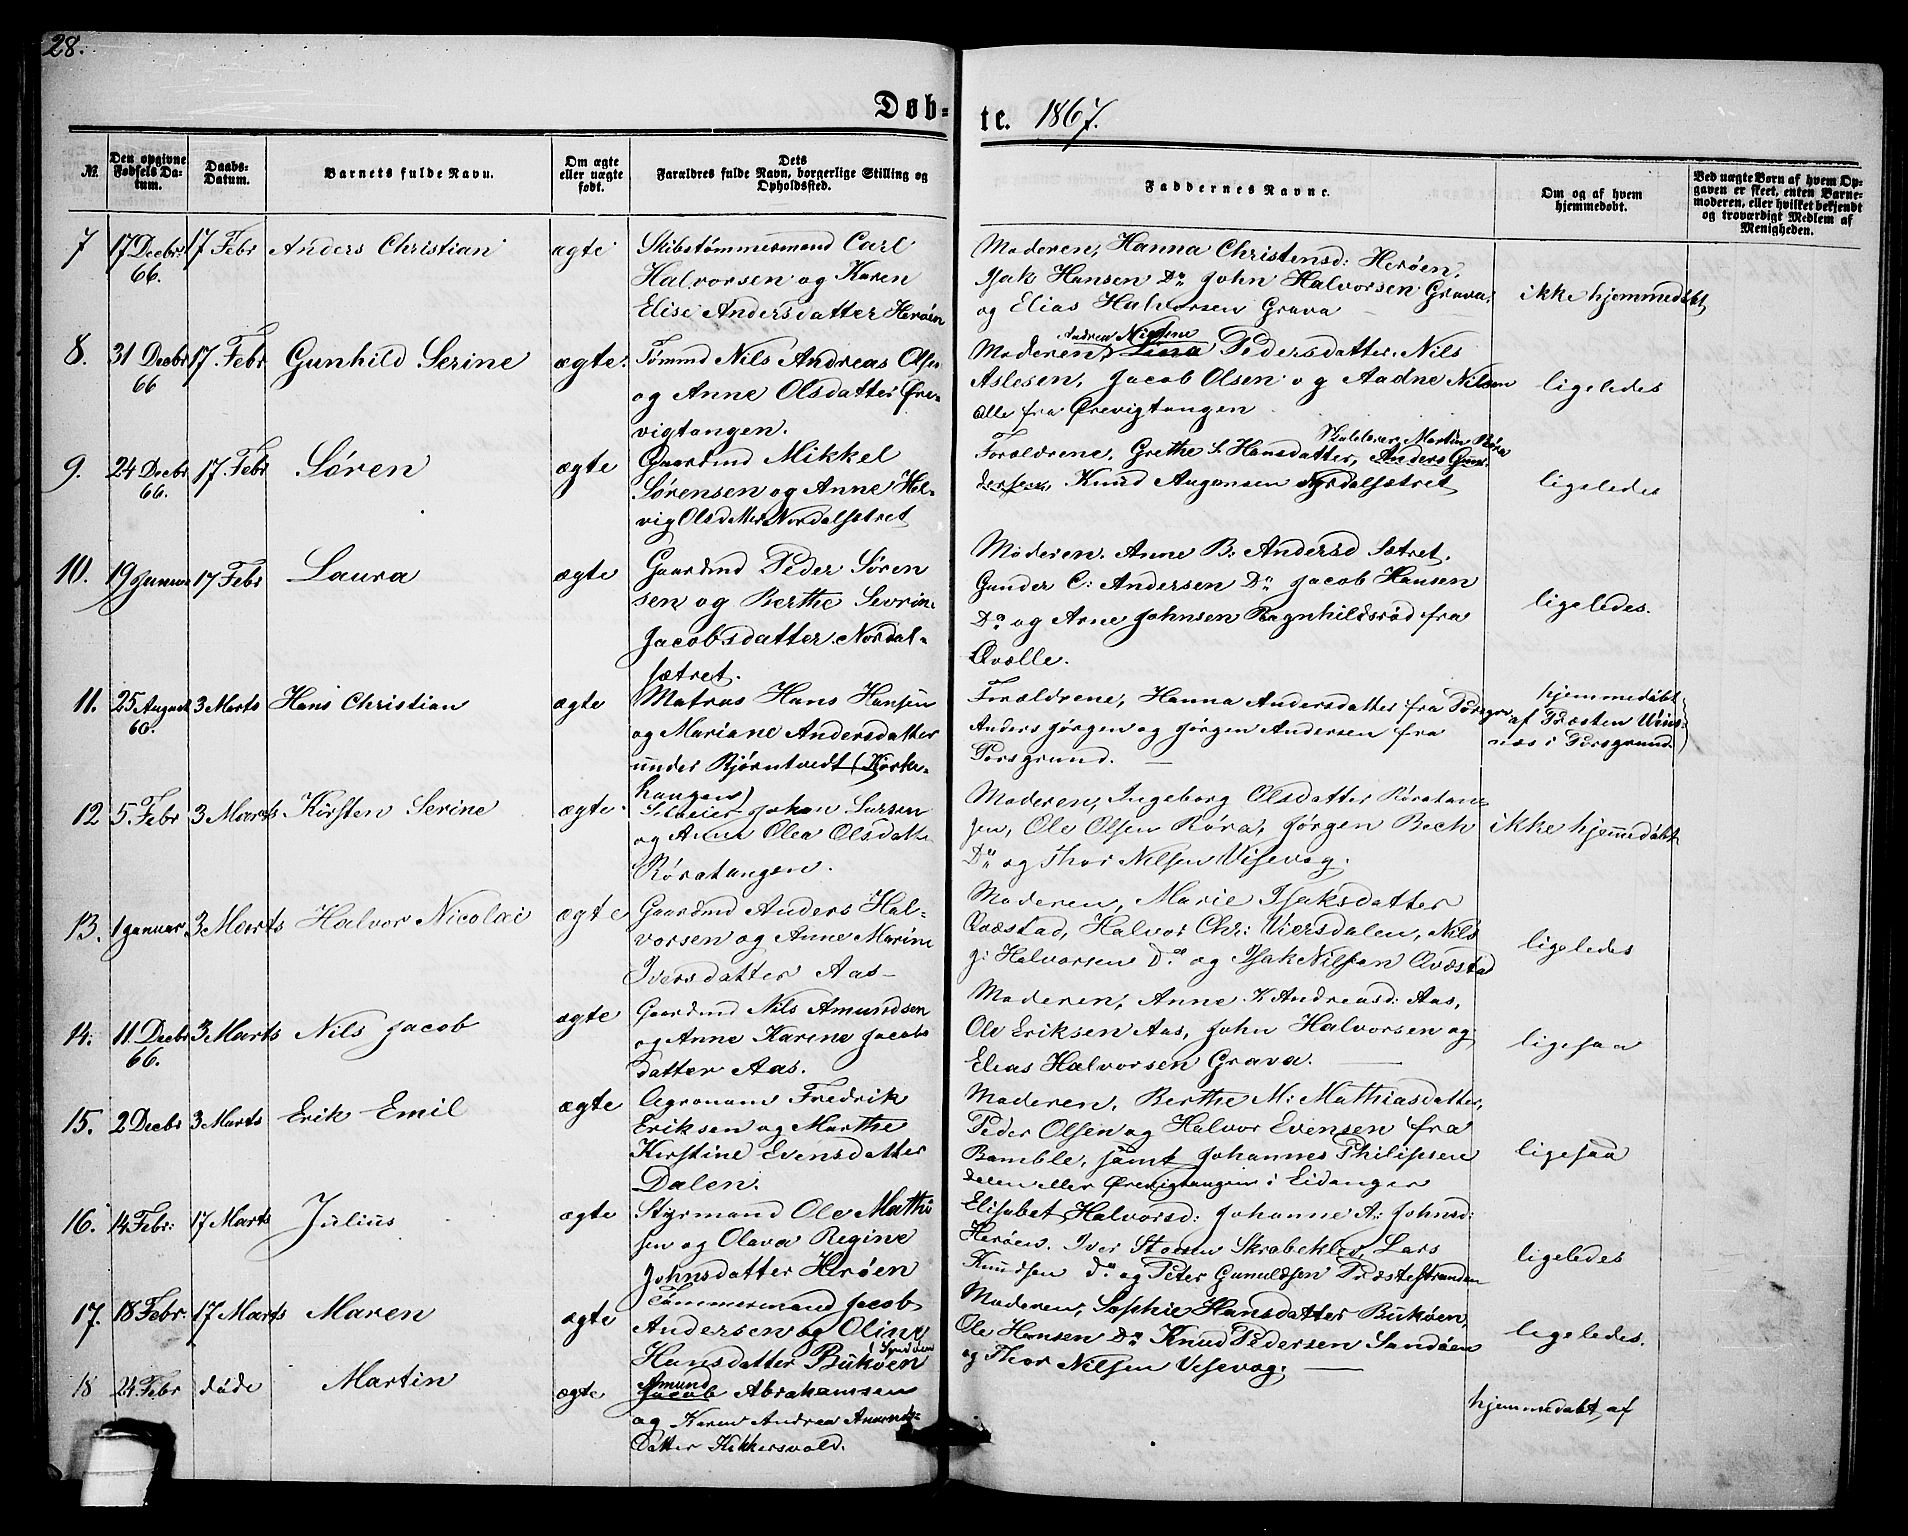 28.
Døb=
te. 1867.
№
Den opgivne Fødsels Da-tum.
Daabs-Datum.
Barnets fulde Navn.
Om ægte eller uægte født.
Dets Forældres fulde Navn, borgerlige Stilling og Opholdssted.
Faddernes Navne.
Om og af hvem hjemmedøbt.
Ved uægte Børn af hvem Op-gaven er skeet, enten Barne-moderen, eller hvilket bekjendt og troværdigt Medlem af Menigheden.
7 17 Decbr: 66. 17 Febr Anders Christian ægte
Skibstømmermand Carl
Halvorsen og Karen
Elise Andersdatter Herøen
Moderen, Hanna Christensd: Herøen,
Isak Hansen Do John Halvorsen Grava,
og Elias Halvorsen Grava
ikke hjemmedøbt
8. 31 Decbr 66 17. Febr Gunhild Serine ægte.
Tømmd Nils Andreas Olsen
og Anne Olsdatter Øre-
vigtangen.
Andrea Nielsine
Moderen, Lina Pedersdatter, Nils
Aslesen, Jacob Olsen og Aadne Nilsen
alle fra Ørevigtangen
ligeledes
9. 24 Decbr 66. 17. Febr Søren ægte
Gaardmd Mikkel
Sørensen og Anne Hel-
vig Olsdatter Nordalsætret
Skolelærer Martin Røra
Forældrene, Grethe S. Hansdatter, Anders Gun-
dersen, Knud Augensen Nordalsætret
ligeledes
10. 19 Januar 17 Febr Laura ægte
Gaardmd Peder Søren
sen og Berthe Sevrine
Jacobsdatter Nordal-
sætret.
Moderen. Anne B. Andersd Sætret.
Gunder C: Andersen Do Jacob Hansen
Do og Arne Johnsen Ragnhildsrød fra
Qvelle.
ligeledes.
11. 25 August 60. 3 Marts Hans Christian ægte
Matros Hans Hansen
og Mariane Andersdatter
under Bjørntvedt (Kirke-
haugen)
Forældrene, Hanna Andersdatter fra Porsgr.
Anders Jørgen og Jørgen Andersen fra
Porsgrund.
hjemmedøbt
af Præsten Wins-
nes i Porsgrund.
12 5. Febr 3 Marts Kirsten Serine ægte.
Selveier Johan Larsen
og Anne Olea Olsdatt.
Røratangen.
Moderen, Ingeborg Olsdatter Røratan-
gen, Ole Olsen Røra, Jørgen Bech
Do og Thor Nilsen Visevag.
ikke hjemmedøbt
13. 1 Januar 3 Marts Halvor Nicolai ægte
Gaardmd Anders Hal-
vorsen og Anne Marine
Iversdatter Aas
Moderen, Marie Isaksdatter
Qvæstad, Halvor Chr: Viersdalen, Nils
J: Halvorsen Do og Isak Nilsen Qvæstad
ligeledes
14. 11 Decbr 66. 3 Marts Nils Jacob ægte
Gaardmd Nils Amundsen
og Anne Karine Jacobs
datter Aas.
Moderen, Anne K Andreasd: Aas,
Ole Eriksen Aas, John Halvorsen og
Elias Halvorsen Grava.
ligesaa
15. 2 Decbr 3 Marts Erik Emil ægte
Agronom Fredrik
Eriksen og Marthe
Kirstine Evensdatter
Dalen.
Moderen, Berthe M: Mathiasdatter,
Peder Olsen og Halvor Evensen fra
Bamble, samt Johannes Philipsen
Dalen eller Ørevigtangen i Eidanger
ligesaa
16. 14 Febr: 17 Marts Julius ægte
Styrmand Ole Mathi
sen og Olava Regine
Johnsdatter Herøen
Elisabet Halvorsd: Johanne A: Johnsd:
Herøen. Iver Skrabeklev, Lars
Knudsen Do og Peter Gunuldsen Præstestranden
ligeledes
17. 18 Febr: 17 Marts Maren ægte
Tømmermand Jacob
Andersen og Oline
Hansdatter Bukøen (Sandøen)
Moderen, Sophie Hansdatter Bukøen,
Ole Hansen Do Knud Pedersen Sandøen
og Thor Nilsen Visevag.
ligeledes.
18 24 Febr døde Martin ægte
Amund
Jacob Abrahamsen
og Karen Andrea Amunds-
Datter Kikkersvold.
hjemmedøbt af